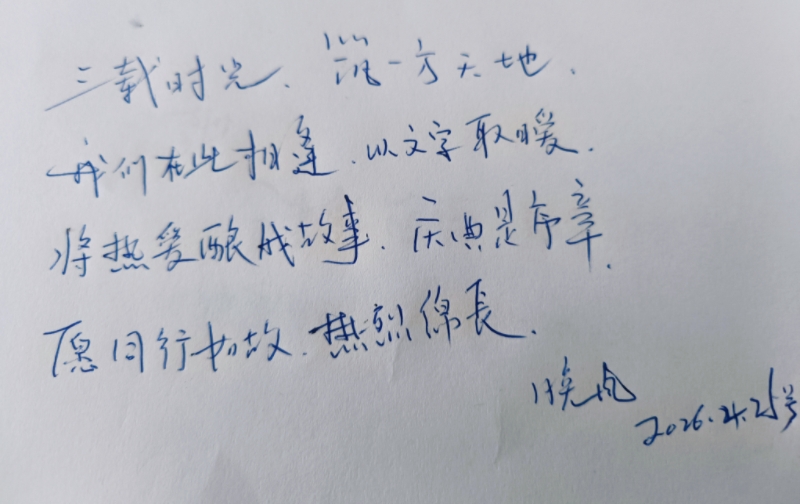 三载时光、筑一方天地、
我们在此相逢、以文字取暖、
将热爱酿成故事、庆典是序章、
愿同行如故、热烈绵長、
晚风
2026.4.25号